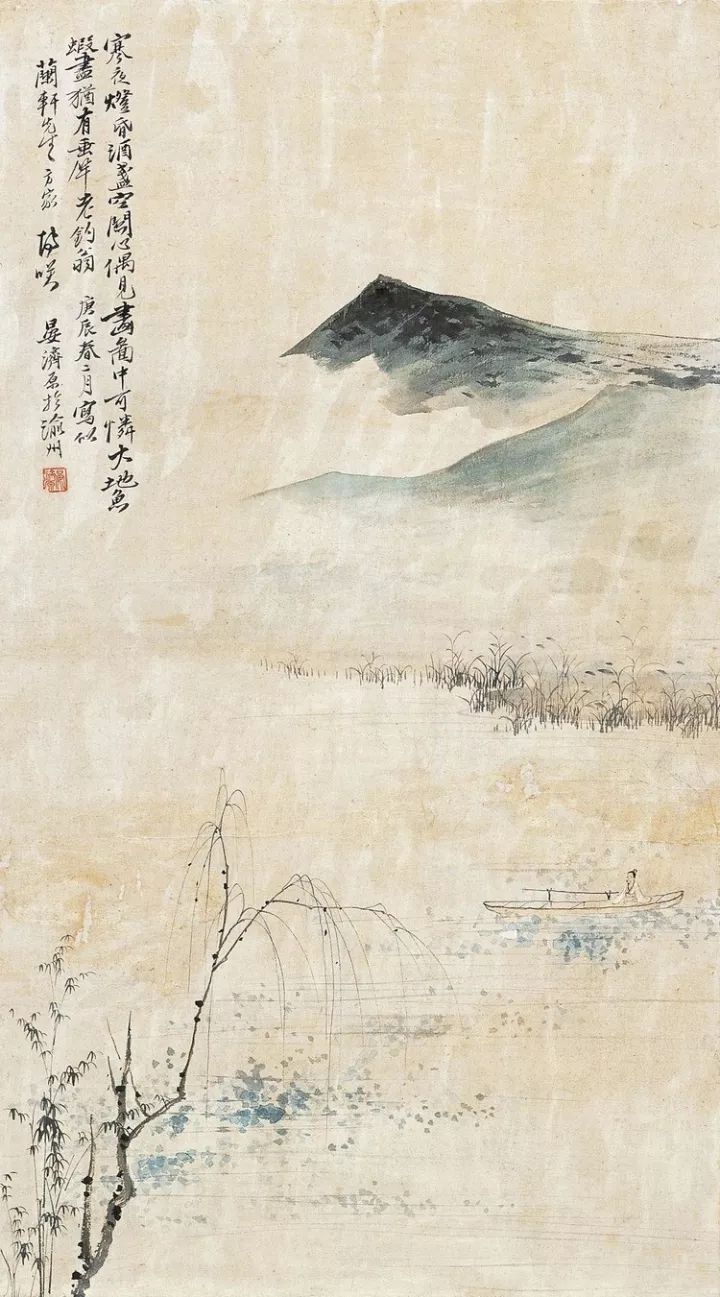 寒夜燈昏酒盞空關心偶見畫圖中可憐大地魚
蝦盡猶有垂竿老釣翁 庚辰春二月寫似
蘭軒先生方家 博咲 晏濟原於渝州